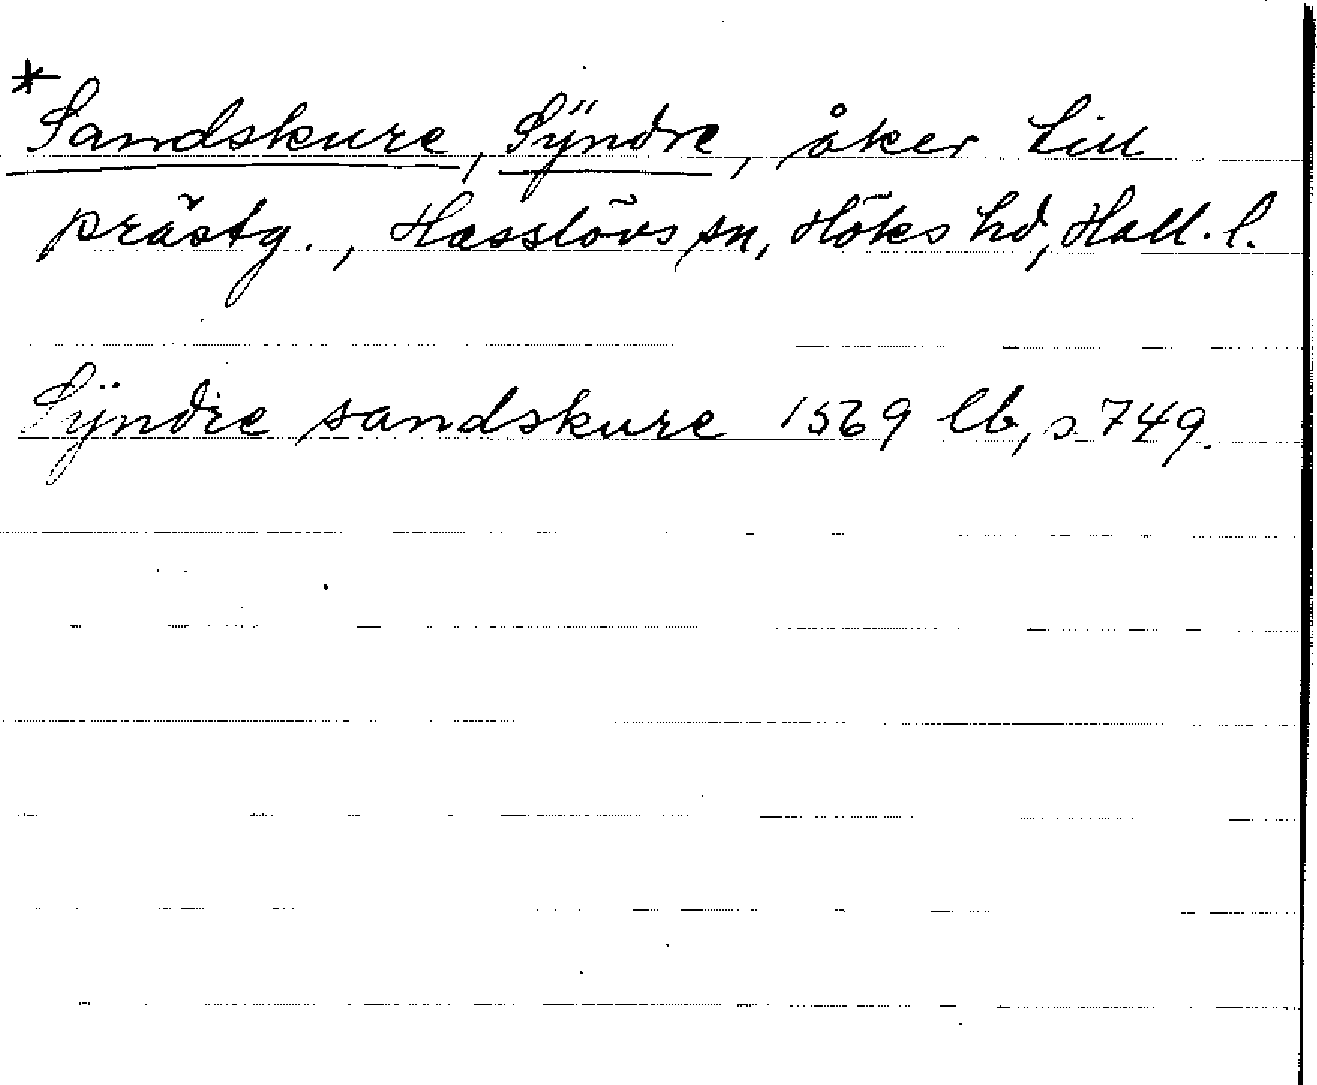 *Sandskure, Sÿndre, åker till
prästg., Hasslövs sn, Höks hd, Hall. l.
Sÿndre sandskure 1569 lb, s 749.